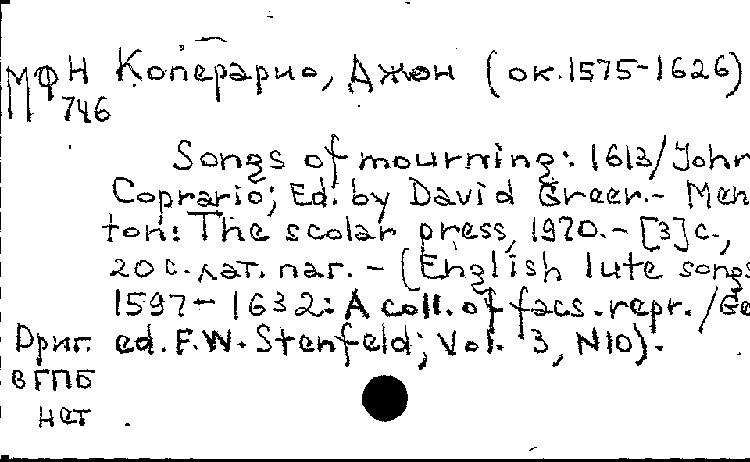 МФН Коперарио, Джон (ок.1575-1626)
746
Songs of mourning: 1613/John
Coprario; Ed. by David Greer.- Men
ton: The scolar press, 1970.- [3]с.,
20 с. лат. паг. - (English lute songs
1597- 1632: A coll. of facs. repr. /Ge
ed. F.W. Stenfeld; Vol. 3, N10).
Ориг.
в ГПБ
нет